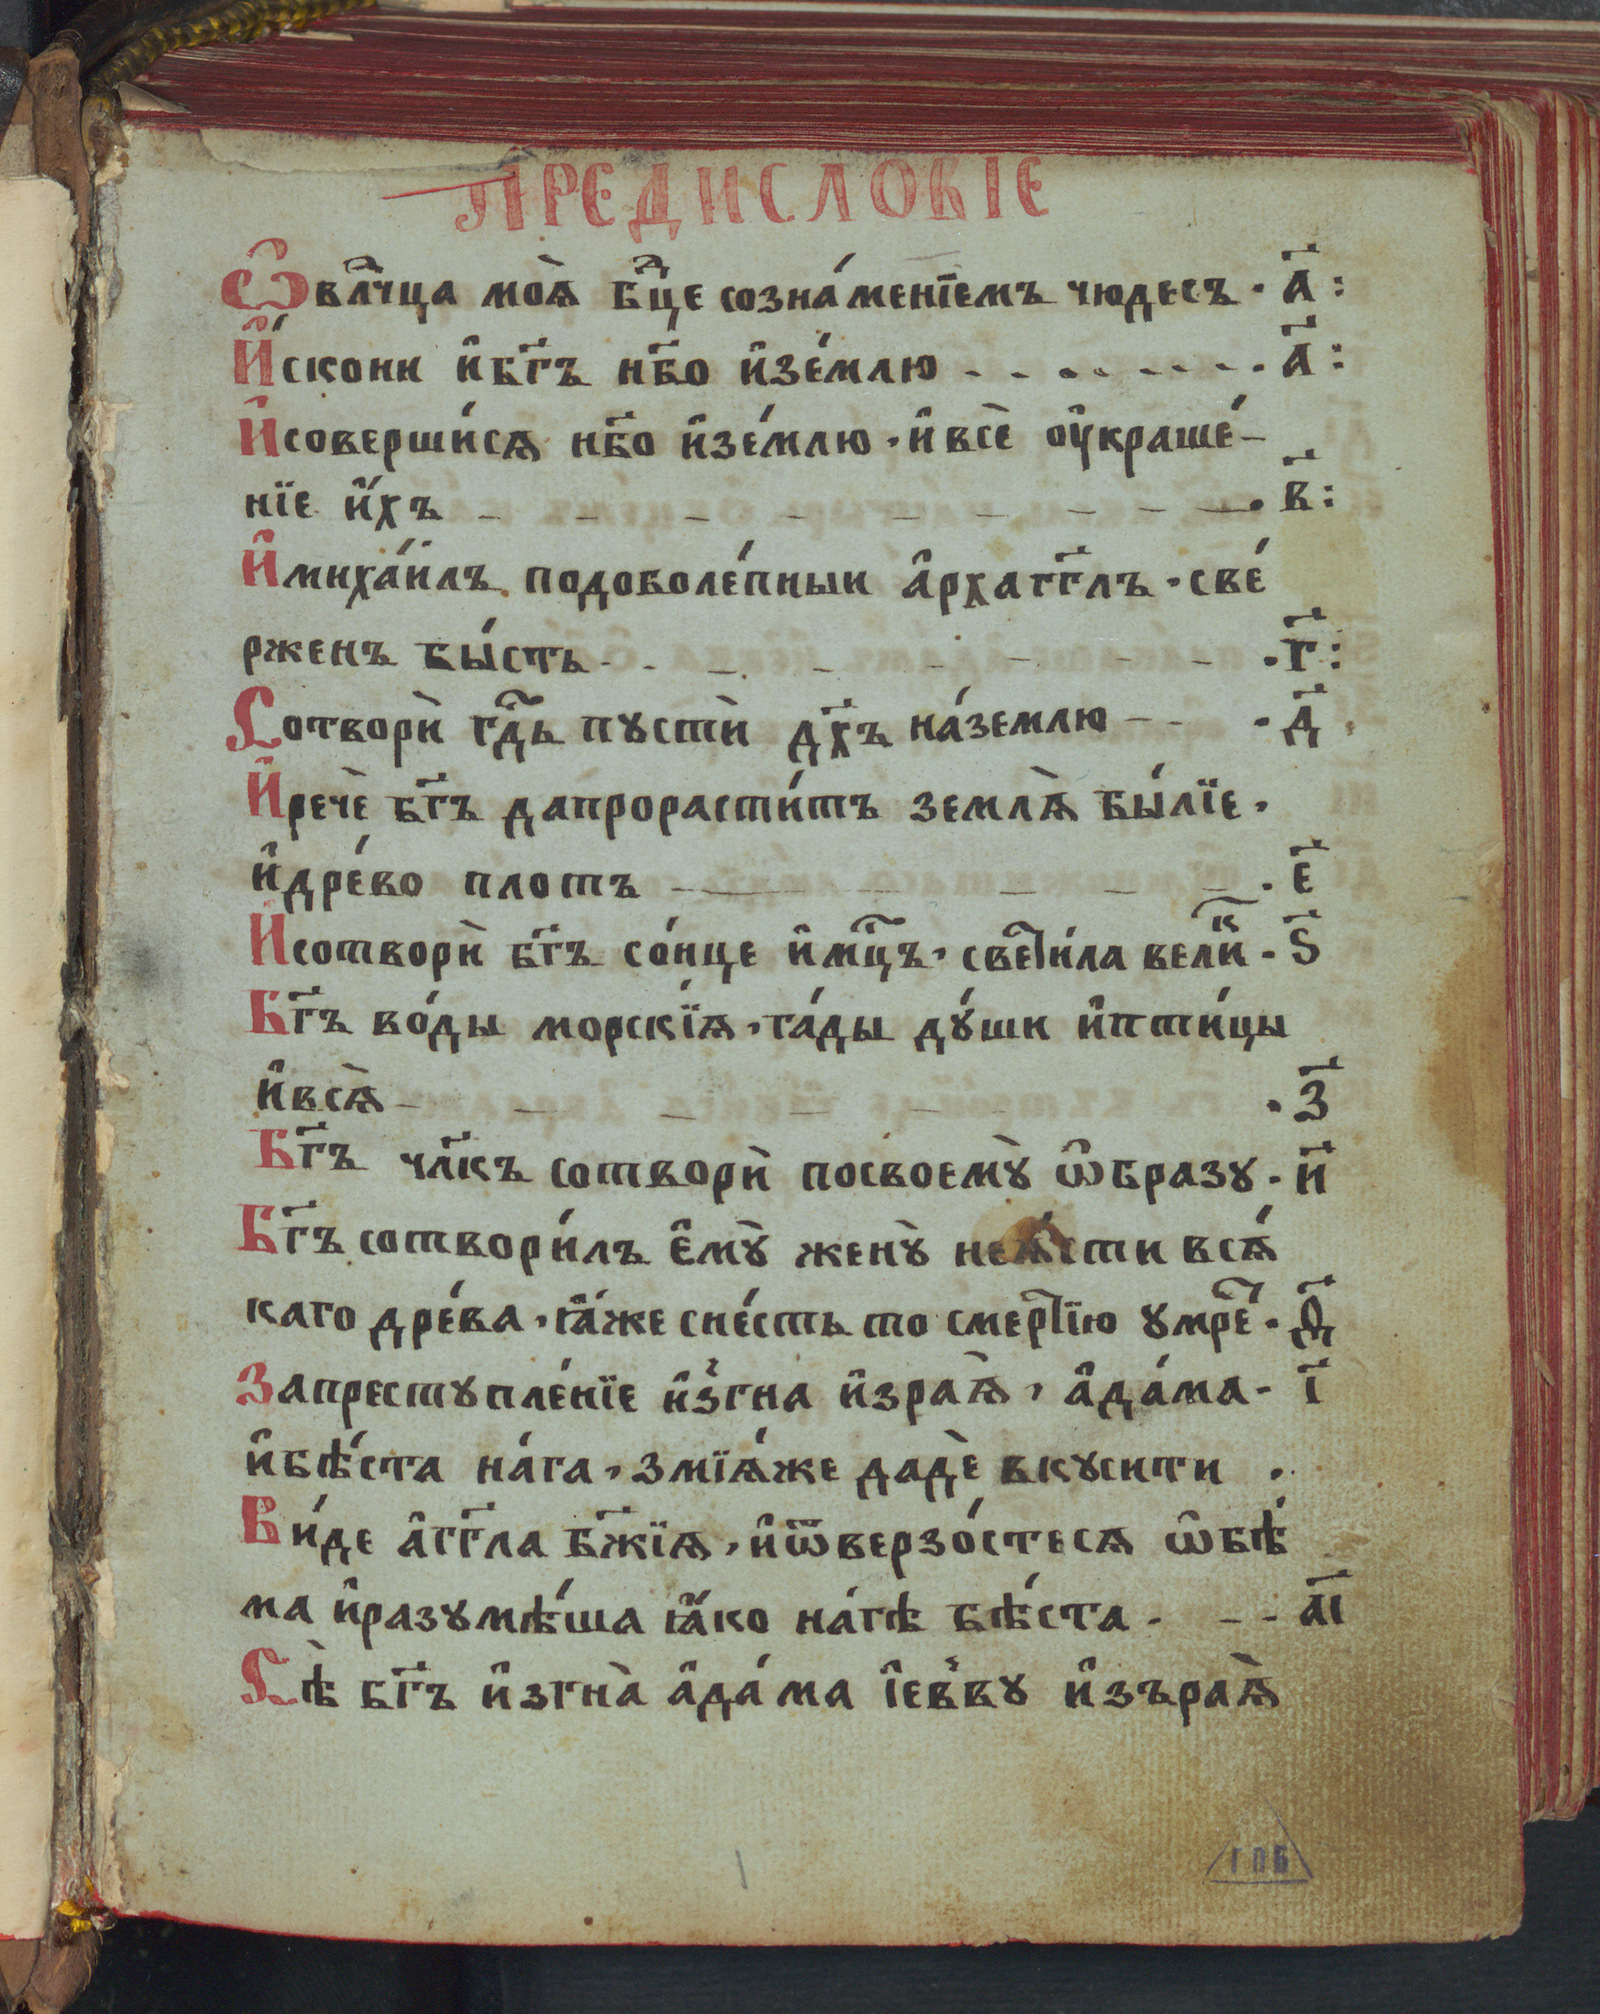 ПРЕДИСЛОВІЕ
Ѡ влⷣчца моѧ̀ бⷣце созна́менїемъ чюдесъ · а҃ :
И҆́скони и҆бг҃ъ нб҃о и҆зе́млю - - - - - - - · а҃ :
И҆соверши́сѧ нб҃о и҆зе́млю · и҆всѐ оу҆краше́-
нїе и҆́хъ - - - - - - - - · в҃ :
И҆миха́илъ подоболе́пныи а҆рхагг҃лъ · све́
рженъ бы́сть - - - - - - - · г҃ :
Сотворѝ гдⷭ҇ь пꙋстѝ дх҃ъ на́землю - - · д҃
И҆речѐ бг҃ъ дапрорасти́тъ землѧ̀ бы́лїе ·
и҆дре́во плотъ - - - - - · е҃
И҆сотворѝ бг҃ъ со́нце и҆мцⷭ҇ъ · свети́ла велиⷦ҇ · ѕ҃
Бг҃ъ во́ды морскі́ѧ · га́ды дꙋ́ши и҆пти́цы
и҆всѧ̀ - - - - - - · з҃
Бг҃ъ чл҃къ сотворѝ посвоемꙋ̀ ѡ҆бразꙋ · и҃
Бг҃ъ сотвори́лъ є҆мꙋ̀ женꙋ̀ неꙗ́сти всѧ́
каго дре́ва · ꙗ҆́же сне́сть то смертїю ꙋмреⷮ · ѳ҃
Запрестꙋпле́нїе и҆згна и҆зраѧ̀ · а҆да́ма - і҃
и҆бѣ́ста на́га · змїѧ́же дадѐ вкꙋсити ·
Ви́де а҆гг҃ла бж҃їѧ · и҆ѿверзо́стесѧ ѡ҆бѣ́
ма и҆разꙋмѣ́ша ꙗ҆́ко на́гѣ бѣ́ста · - - а҃і
Сѣ̀ бг҃ъ и҆згна̀ а҆да́ма і҆еввꙋ и҆зъраѧ̀
1
ГПБ